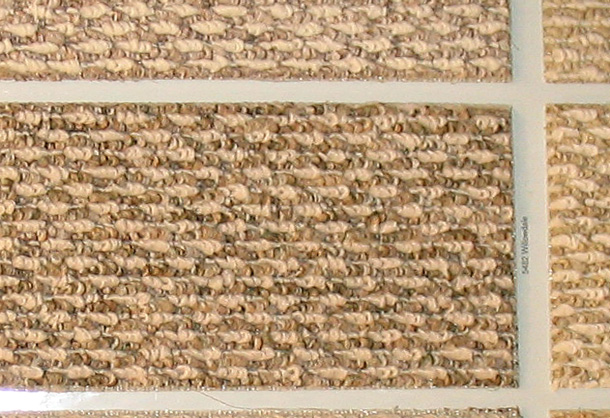 5482 Willowdale